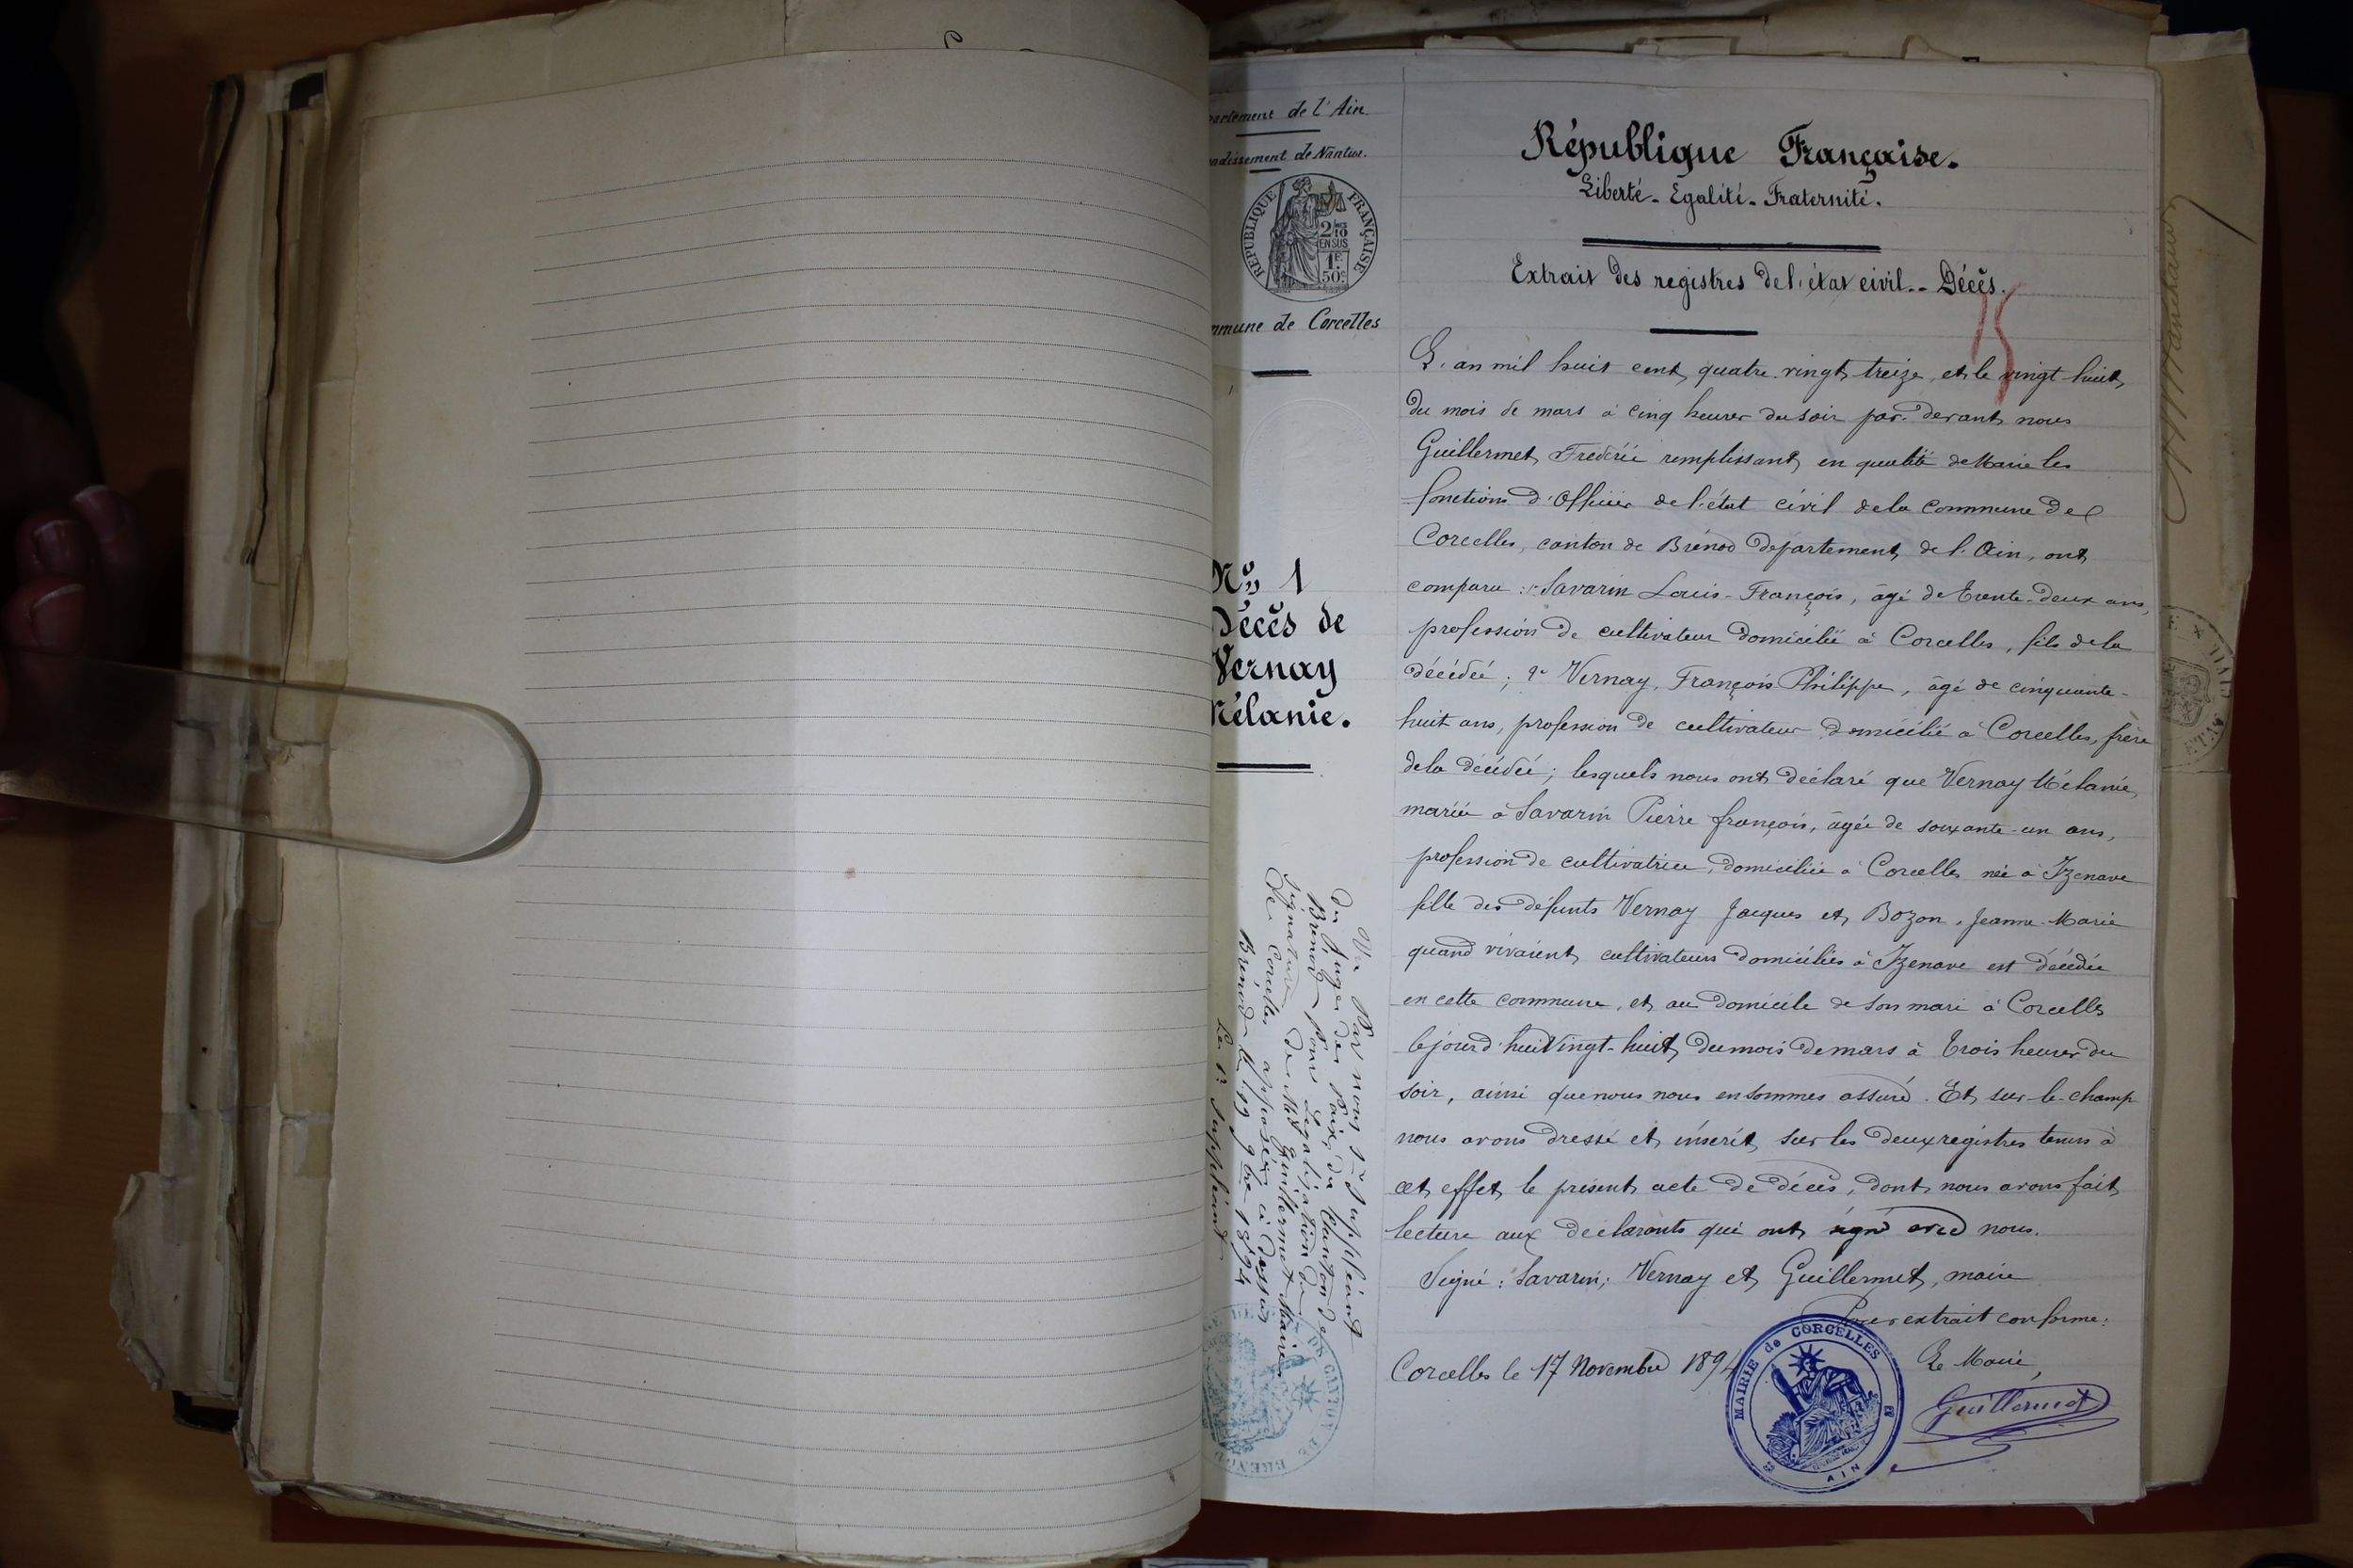 partement de l'Ain.
ndissement de Nantua.
RÉPUBLIQUE FRANÇAISE
2/10
EN SUS
1F.
50C.
mmune de Corcelles
No 1
Décès de
Vernay
Mélanie.
Vu Par nous 1er Suppléant
du Juge de Paix du Canton de
Brénod Pour Légalisation de la
signature de Mr Guillermet Maire
de Corcelles apposée ci dessus
Brénod le 19 9bre 1894
Le 1er suppléant
République Française.
Liberté - Egalité - Fraternité.
Extrait des registres de l'état civil.. Décès.
15
L'an mil huit cent quatre vingt treize, et le vingt-huit
du mois de mars à cinq heures du soir par-devant nous
Guillermet Frédéric remplissant en qualité de Maire les
fonctions d'Officier de l'état civil de la commune de
Corcelles, canton de Brénod département de l'Ain, ont
comparu : 1° Savarin Louis-François, âgé de trente-deux ans,
profession de cultivateur domicilié à Corcelles, fils de la
décédée ; 2° Vernay, François Philippe, âgé de cinquante-
huit ans, profession de cultivateur domicilié à Corcelles, frère
de la décédée ; lesquels nous ont déclaré que Vernay Mélanie,
mariée à Savarin Pierre françois, âgée de soixante-un ans,
profession de cultivatrice, domiciliée à Corcelles née à Izenave
fille des défunts Vernay Jacques et Bozon, Jeanne-Marie
quand vivaient cultivateurs domiciliés à Izenave est décédée
en cette commune, et au domicile de son mari à Corcelles
cejourd'hui Vingt-huit du mois de mars à trois heures du
soir, ainsi que nous nous en sommes assuré. Et sur-le-champ
nous avons dressé et inscrit sur les deux registres tenus à
cet effet le présent acte de décès, dont nous avons fait
lecture aux déclarants qui ont signé avec nous.
Signé : Savarin; Vernay et Guillermet, maire
Pour extrait conforme:
Corcelles le 17 Novembre 1894
Le Maire,
Guillermet
MAIRIE de CORCELLES
AIN
DU CANTON DE
BRENOD